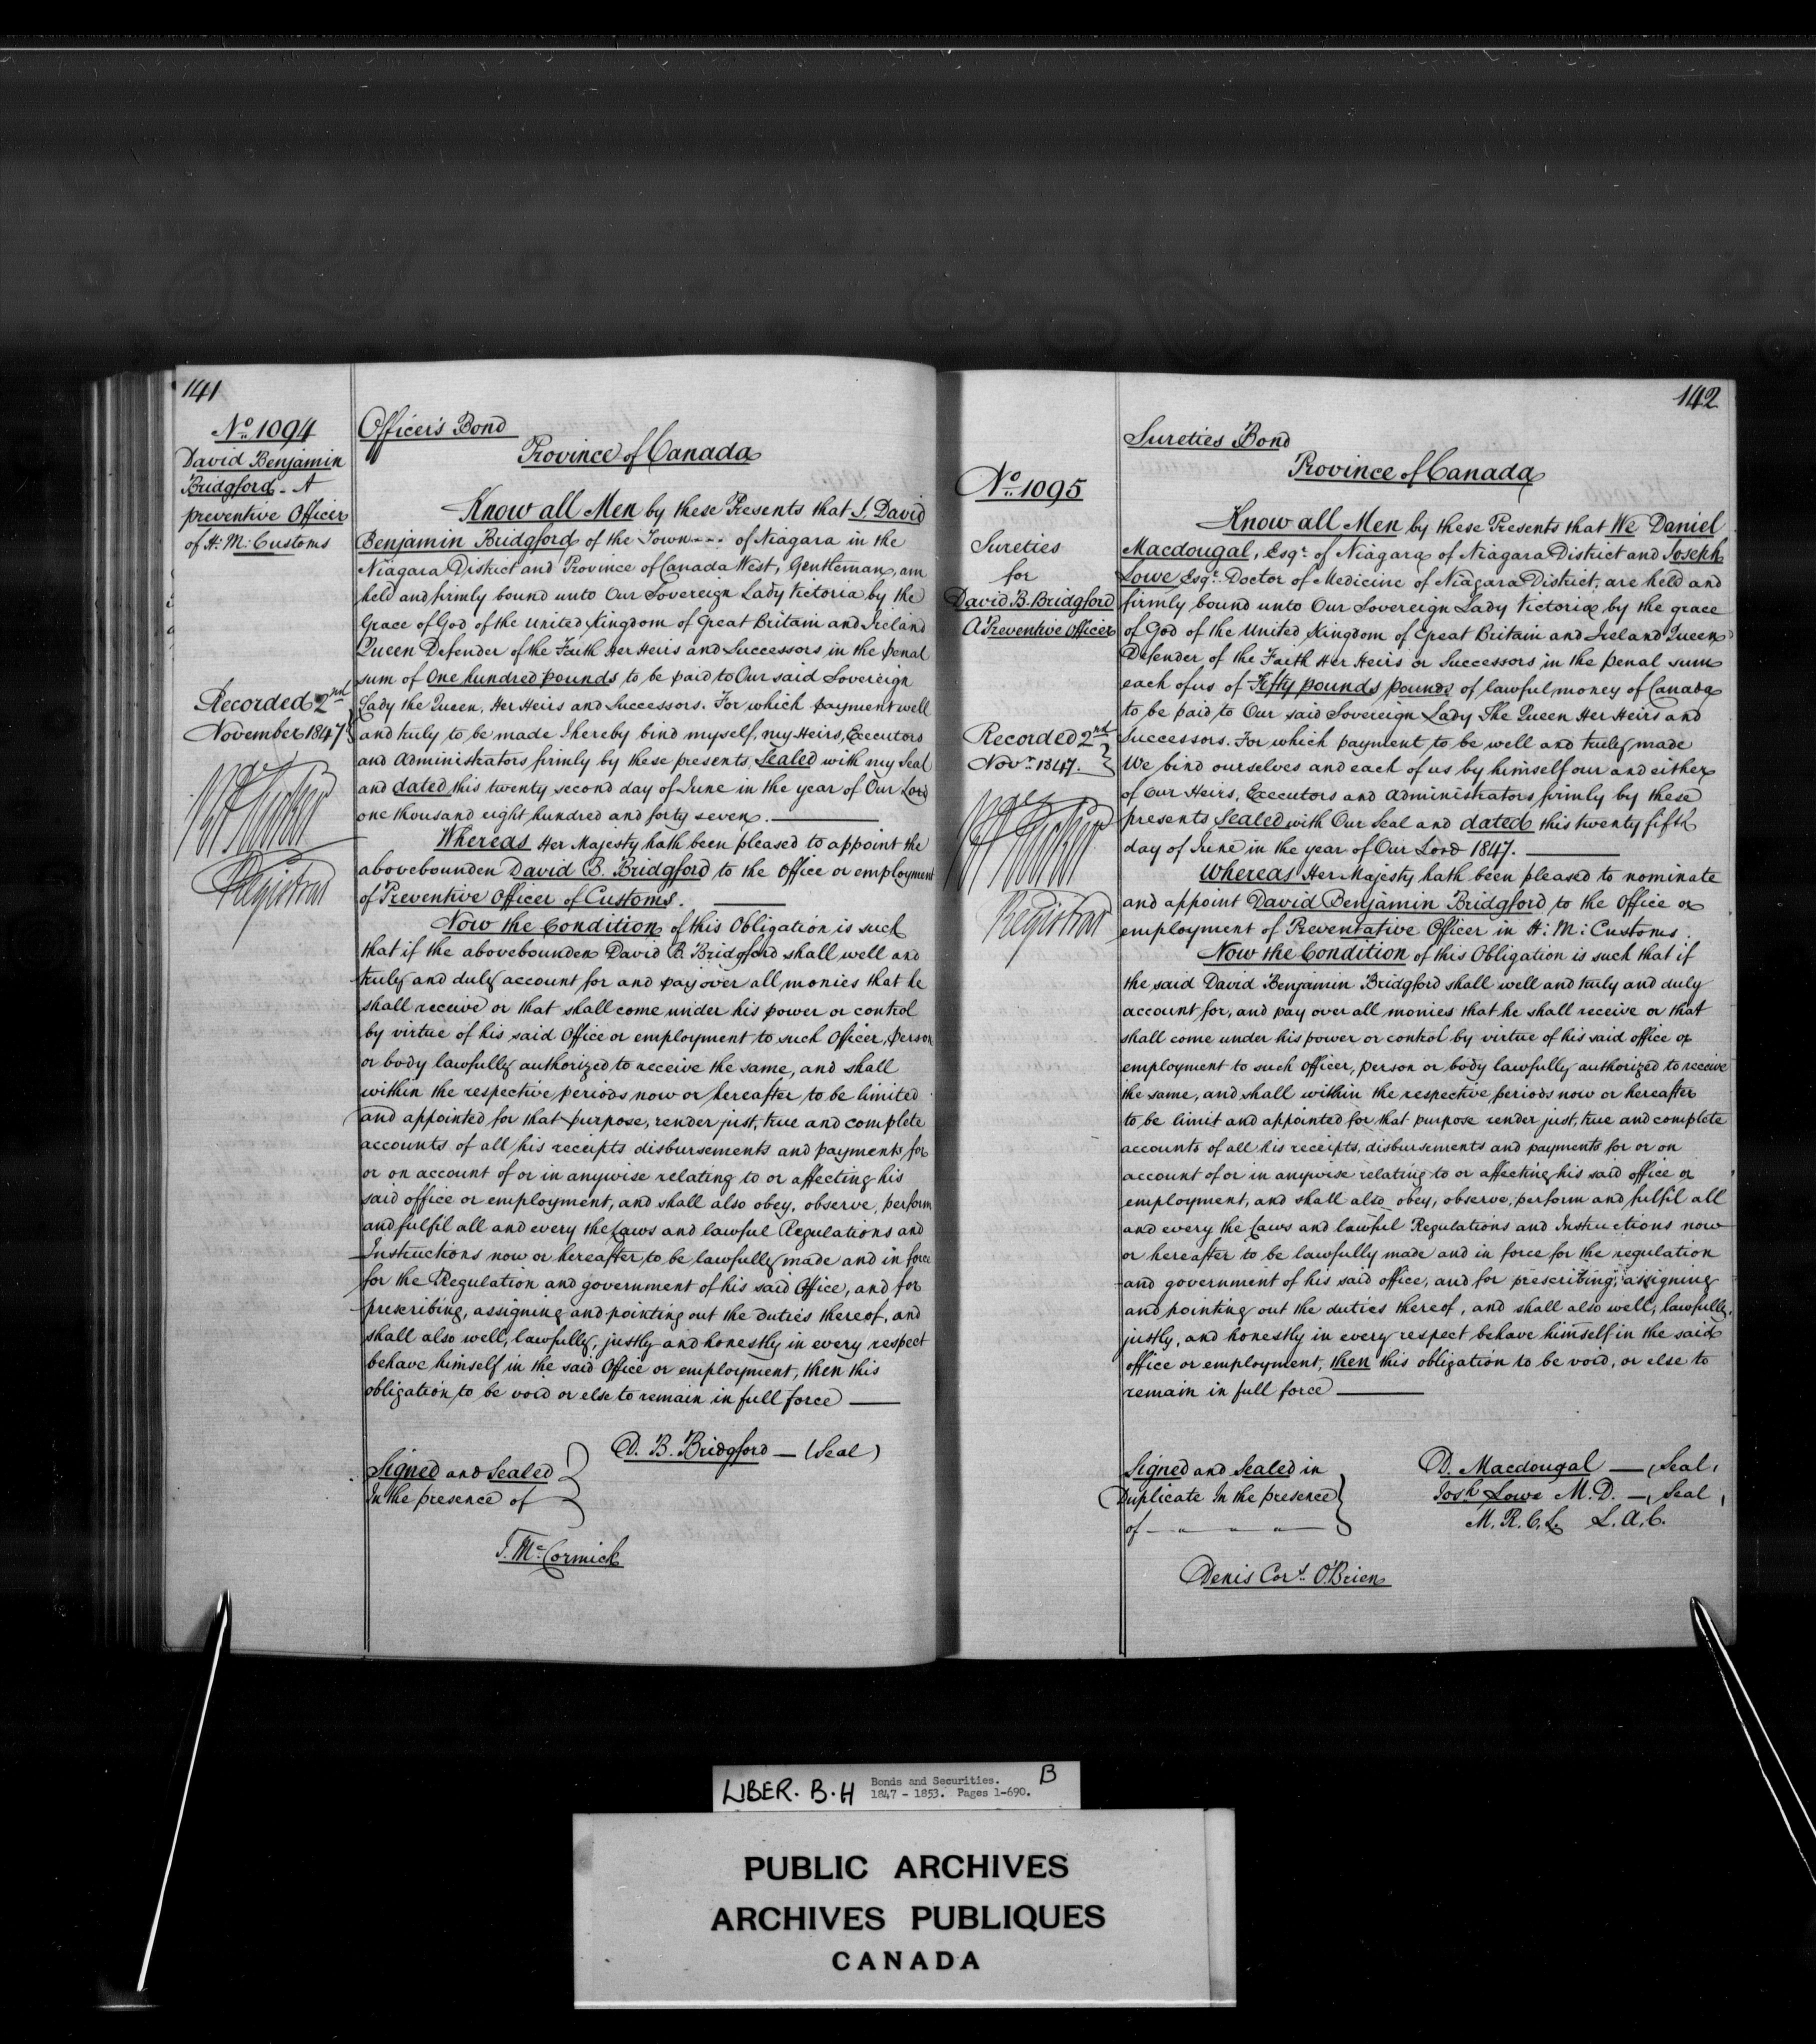 141
No. 1094
David Benjamin
Bridgford - A
preventive Officer
of H: M: Customs
Recorded 2nd
November 1847
Registrar
Officer's Bond
Province of Canada
Know all Men by these Presents that I. David
Benjamin Bridgford of the Town --- of Niagara in the
Niagara District and Province of Canada West, Gentleman, am
held and firmly bound unto Our Sovereign Lady Victoria by the
Grace of God of the United Kingdom of Great Britain and Ireland
Queen Defender of the Faith Her Heirs and Successors in the penal
sum of One hundred pounds to be paid to Our said Sovereign
Lady the Queen, Her Heirs and Successors. For which payment well
and truly to be made I hereby bind myself, my Heirs, Executors
and Administrators firmly by these presents, Sealed with my Seal
and dated this twenty second day of June in the year of Our Lord
one thousand eight hundred and forty seven.
Whereas Her Majesty hath been pleased to appoint the
abovebounden David B. Bridgford to the Office or employment
of Preventive Officer of Customs.
Now the Condition of this Obligation is such
that if the abovebounden David B. Bridgford shall well and
truly and duly account for and pay over all monies that he
shall receive or that shall come under his power or control
by virtue of his said Office or employment to such Officer, person
or body lawfully authorized to receive the same, and shall
within the respective periods now or hereafter to be limited
and appointed for that purpose, render just, true and complete
accounts of all his receipts disbursements and payments for
or on account of or in anywise relating to or affecting his
said office or employment, and shall also obey, observe, perform
and fulfil all and every the Laws and lawful Regulations and
Instructions now or hereafter, to be lawfully made and in force
for the Regulation and government of his said Office, and for
prescribing, assigning and pointing out the duties thereof, and
shall also well, lawfully, justly and honestly in every respect
behave himself in the said Office or employment, then this
obligation to be void or else to remain in full force
D. B. Bridgford — (Seal)
Signed and Sealed
In the presence of
T. McCormick
142
No. 1095
Sureties
for
David B. Bridgford
A Preventive Officer
Recorded 2nd
Novr 1847.
Registrar
Sureties Bond
Province of Canada
Know all Men by these Presents that We Daniel
Macdougal, Esqr. of Niagara of Niagara District and Joseph
Lowe Esqr. Doctor of Medicine of Niagara District, are held and
firmly bound unto Our Sovereign Lady Victoria by the grace
of God of the United Kingdom of Great Britain and Ireland Queen
Defender of the Faith Her Heirs or Successors in the penal sum
each of us of Fifty pounds pounds of lawful money of Canada
to be paid to Our said Sovereign Lady The Queen Her Heirs and
Successors. For which payment to be well and truly made
We bind ourselves and each of us by himself our and either
of Our Heirs, Executors and Administrators firmly by these
presents Sealed with Our Seal and dated this twenty fifth
day of June in the year of Our Lord 1847.
Whereas Her Majesty hath been pleased to nominate
and appoint David Benjamin Bridgford to the Office or
employment of Preventative Officer in H: M: Customs.
Now the Condition of this Obligation is such that if
the said David Benjamin Bridgford shall well and truly and duly
account for, and pay over all monies that he shall receive or that
shall come under his power or control by virtue of his said office or
employment to such Officer, person or body lawfully authorized to receive
the same, and shall within the respective periods now or hereafter
to be limit and appointed for that purpose render just, true and complete
accounts of all his receipts, disbursements and payments for or on
account of or in anywise relating to or affecting his said office or
employment, and shall also obey, observe, perform and fulfil all
and every the Laws and lawful Regulations and Instructions now
or hereafter to be lawfully made and in force for the regulation
and government of his said office, and for prescribing, assigning
and pointing out the duties thereof, and shall also well, lawfully,
justly, and honestly in every respect behave himself in the said
office or employment, then this obligation to be void, or else to
remain in full force
Signed and Sealed in
Duplicate In the presence
of
D. Macdougal — (Seal)
Josh Lowe M.D. — (Seal)
M. R. C. L. L. A. C.
Denis Cort. O'Brien
LIBER. B.H
Bonds and Securities.
1847 - 1853. Pages 1-690.
B
PUBLIC ARCHIVES
ARCHIVES PUBLIQUES
CANADA